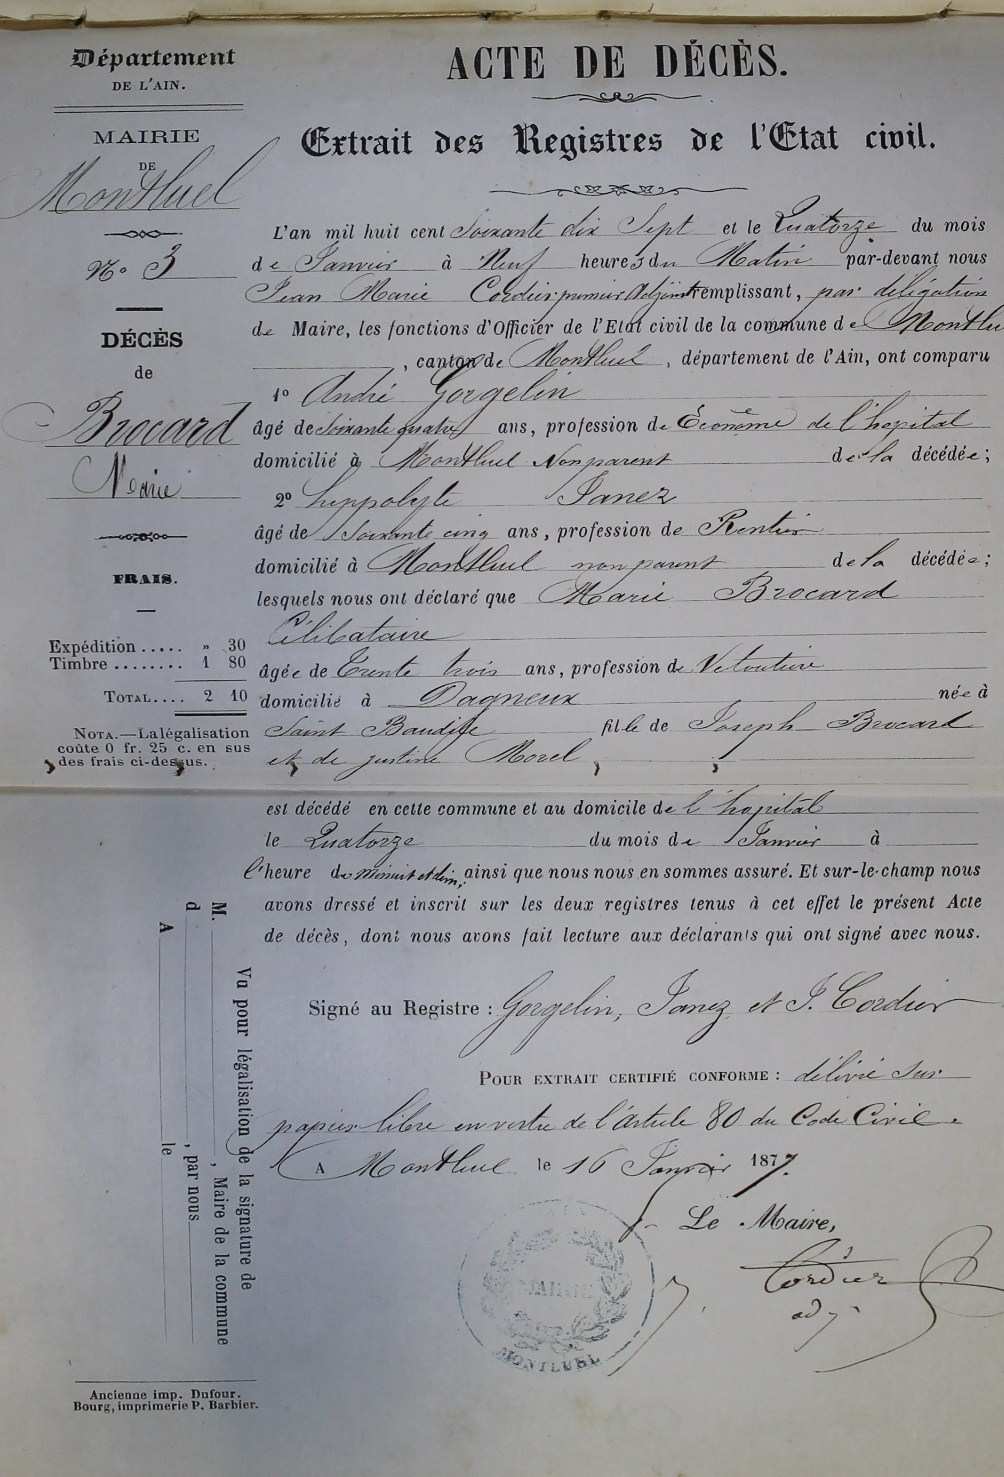 Département
DE L'AIN.
MAIRIE
DE
Montluel
N.o 3
DÉCÈS
de
Brocard
Marie
FRAIS.
Expédition ..... " 30
Timbre ........ 1 80
TOTAL.... 2 10
NOTA.—La légalisation
coûte 0 fr. 25 c. en sus
des frais ci-dessus.
ACTE DE DÉCÈS.
Extrait des Registres de l'Etat civil.
L'an mil huit cent Soixante dix Sept et le Quatorze du mois
de Janvier à Neuf heures du Matin par-devant nous
Jean Marie Cordier premier Adjoint remplissant, par délégation
de Maire, les fonctions d'Officier de l'Etat civil de la commune de Montlu
, canton de Montluel , département de l'Ain, ont comparu
1o André Gorgelin
âgé de Soixante quatre ans, profession de Économe de l'hopital
domicilié à Montluel Non parent de la décédée;
2o hyppolyte Janez
âgé de Soixante cinq ans, profession de Rentier
domicilié à Montluel non parent de la décédée;
lesquels nous ont déclaré que Marie Brocard
Célibataire
âgée de Trente trois ans, profession de
domicilié à Dagneux née à
Saint Baudille fille de Joseph Brocard
et de justine Morel
est décédé en cette commune et au domicile de l'hopital
le Quatorze du mois de Janvier à
l'heure de minuit et demi, ainsi que nous nous en sommes assuré. Et sur-le-champ nous
avons dressé et inscrit sur les deux registres tenus à cet effet le présent Acte
de décès, dont nous avons fait lecture aux déclarants qui ont signé avec nous.
Signé au Registre : Gorgelin, Janez et J. Cordier
POUR EXTRAIT CERTIFIÉ CONFORME : délivré sur
papier libre en vertu de l'article 80 du Code Civil.
A Montluel le 16 Janvier 1877.
Le Maire,
Cordier
adj
MAIRIE
MONTLUEL
Vu pour légalisation de la signature de
M. , Maire de la commune
d , par nous
A le
Ancienne imp. Dufour.
Bourg, imprimerie P. Barbier.